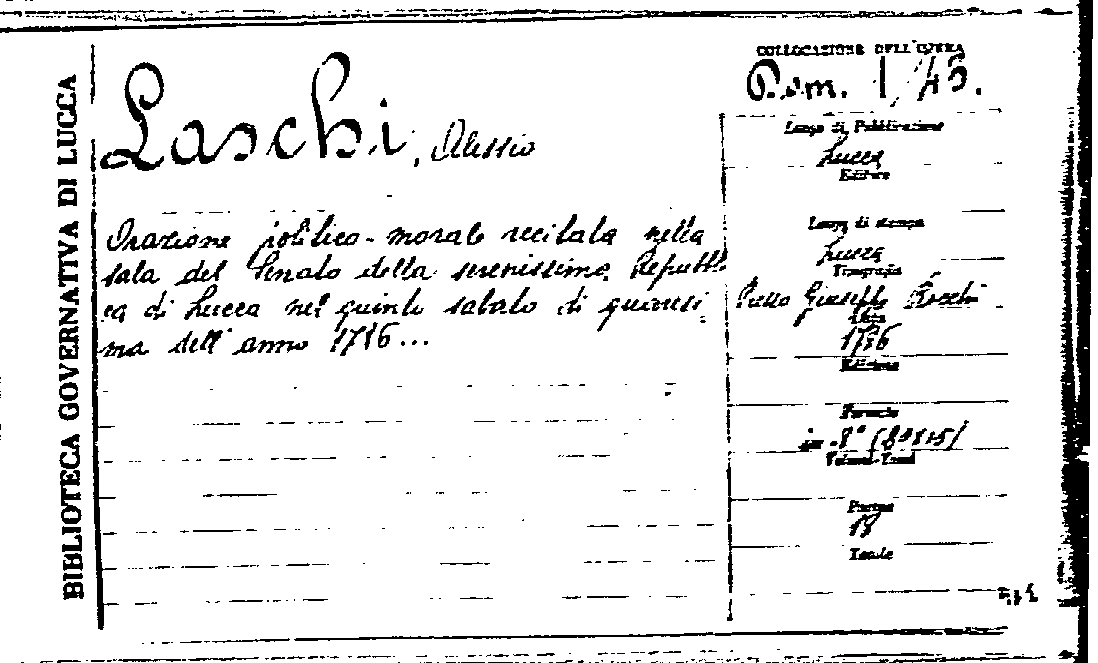 BIBLIOTECA GOVERNATIVA DI LUCCA
Laschi, Alessio
Orazione politico-morale recitata nella
sala del Senato della serenissima Repubbli
ca di Lucca nel quinto sabato di quaresi
ma dell'anno 1716...
COLLOCAZIONE DELL'OPERA
Dom. 1/43.
Luogo di Pubblicazione
Lucca
Editore
Luogo di stampa
Lucca
Tipografia
Giuseppe Rocchi
Data
Edizione
Formato
in-8°
Volumi-Tomi
Pagine
Totale